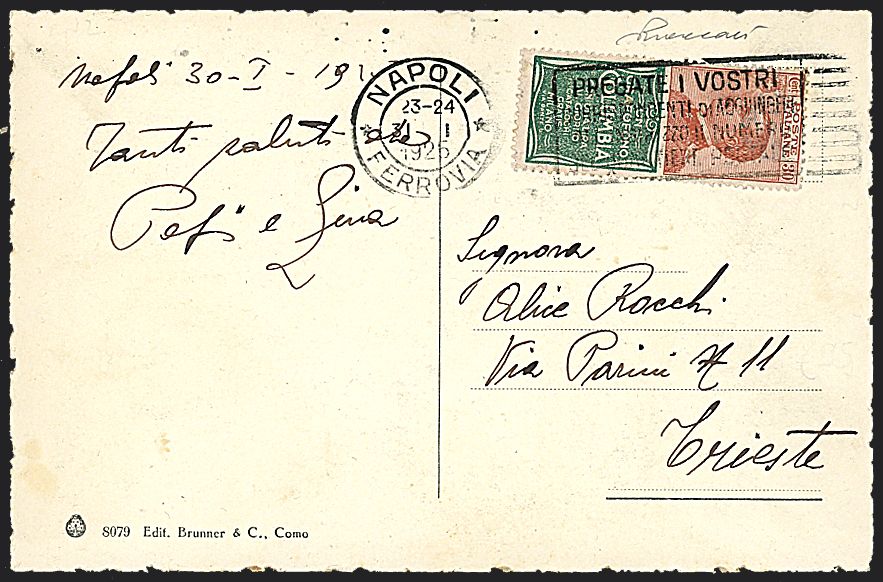 Napoli 30-I-192
Tanti saluti da
Pepi e Lina
NAPOLI
23-24
31 I
1925
FERROVIA
COLUMBIA
PREGATE I VOSTRI
CORRISPONDENTI D'AGGIUNGERE
NUMERO
POSTE ITALIANE
CENT. 30
Signora
Alice Rocchi
Via Parini N 11
Trieste
8079 Edit. Brunner & C., Como